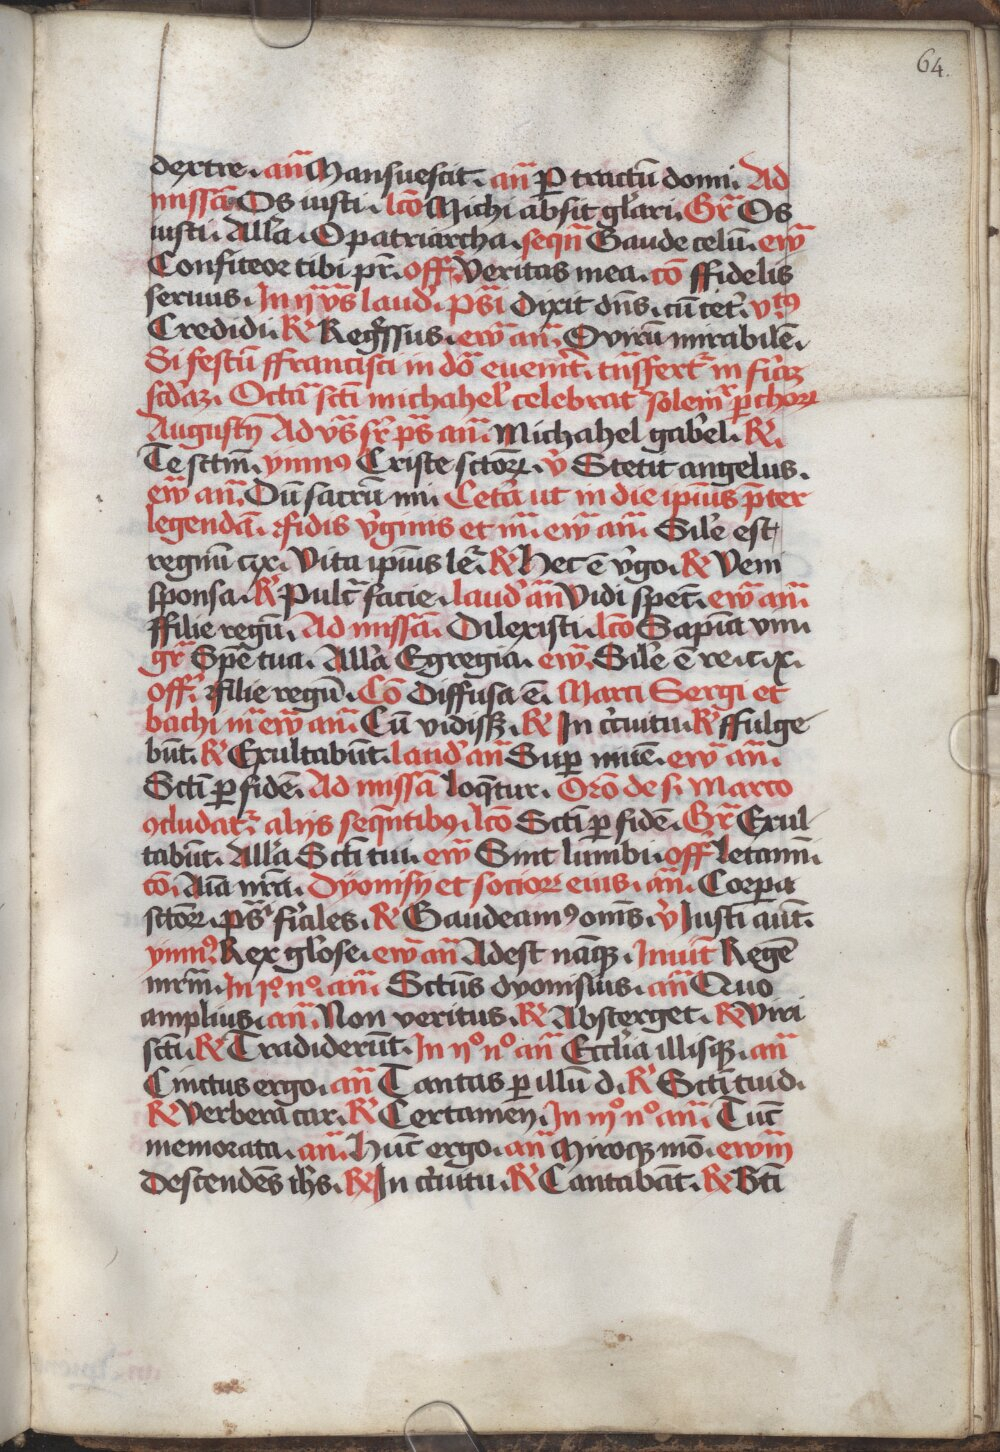 64.
dextre. an̄ Mansuescit. an̄ ꝑ tractū domi. Ad
missā Os iusti. lc̄o Michi absit gl̄ari. Gr̄ Os
iusti. All̄a. O patriarcha. seqn̄ Gaude celū. ew̄
Confiteor tibi pr̄. off̄. Veritas mea. cō ffidelis
seruus. In ij vs̄ laud. ps̄i Dixit dn̄s. cū cet̄.
Credidi. R̄ Regr̄ssus. ew̄ an̄. O virū mirabilē.
Si festū ffrancisci in dō evenit̄. tn̄sfert̄ in
Octā sct̄i michahel celebrat solem̄ ꝑ chorꝝ
Augustn̄ Ad vs̄ ps̄ an̄. Michahel gab̄el. R̄.
Te sctm̄. ymn⁹ Criste sctōꝝ. v̄ Stetit angelus.
ew̄ an̄. Dū sacrū mi. Cetā ut in die ip̄ius p̄ter
legendā. ffidis v̄ginis et m̄. ew̄ an̄. Sil̄e est
regnū cꝝ. Vita ip̄ius lc̄. R̄ Hec ē v̄go. R̄ Veni
sponsa. R̄ Pulc̄ facie. laud an̄ Vidi spet̄. ew̄ an̄.
ffilie regū. Ad missā. Dilexisti. lc̄o Sapīa vin
gr̄ Spē tua. All̄a Egregia. ew̄. Sil̄e ē re. c. x.
off̄. ffilie regū. Cō Diffusa ē. Marci Sergi et
bachi m̄ ew̄ an̄. Cū vidiſꝫ. R̄ In c̄cuitu. R̄ ffulge
būt. R̄ Exultabūt. laud an̄ Suꝑ niuē. ew̄ an̄.
Sct̄i ꝑ fidē. Ad missā loq̄tur. Orō de s. Marco
ꝯcludat̄ alijs seqn̄tibꝰ. lc̄o Sct̄i ꝑ fidē. Gr̄ Exul
tabūt. All̄a Sct̄i tui. ew̄ Sint lūmbi. off̄ letamī.
cō. Aīa nr̄a. Dyonisy et socioꝝ eius. an̄. Corpa
sctōꝝ. ps̄ fr̄iales. R̄ Gaudeam⁹ om̄s. v̄ Iusti aūt.
ymn⁹. Rex gl̄ose. ew̄ an̄ Adest nāqꝫ. Inuit̄ Regē
mr̄m̄. In jº nº an̄. Sctūs dyonisius. an̄ Quo
amplius. an̄. Non veritus. R̄ Absterget. R̄ Viri
sct̄i. R̄ Tradiderūt. In ijº nº an̄ Eccl̄ia illisqꝫ. an̄
Cinctus ergo. an̄ Tantas ꝑ illū d. R̄ Sct̄i tui d.
R̄ Verberā car. R̄ Certamen. In iijº nº an̄. Tūc
memorata. an̄. Hūc ergo. an̄ Miroqꝫ mō. ewm̄
Descendēs ih̄s. R̄ In c̄cuitu. R̄ Cantabāt. R̄ Bt̄i